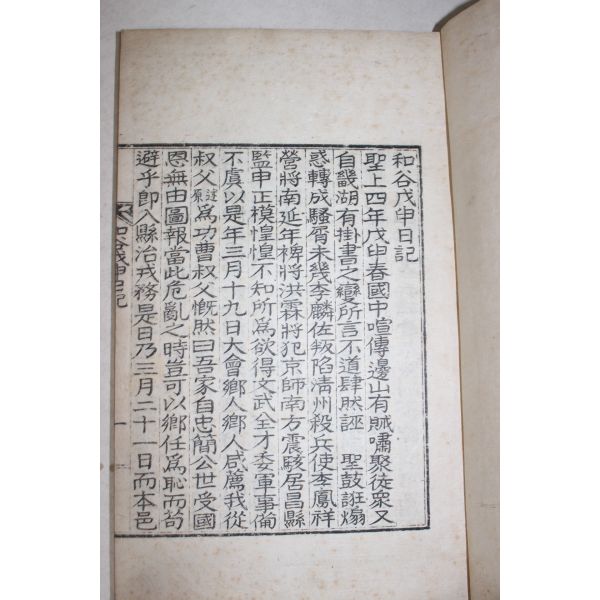 和谷戊申日記
聖上四年戊申春國中喧傳邊山有賊嘯聚徒衆又
自畿湖有掛書之變所言不道肆然誣 聖鼓誑煽
惑轉成騷屑未幾李麟佐叛陷淸州殺兵使李鳳祥
營將南延年裨將洪霖將犯京師南方震駭居昌縣
監申正模惶惶不知所爲欲得文武全才委軍事備
不虞以是年三月十九日大會鄕人鄕人咸薦我從
叔父諱爲功曹叔父慨然曰吾家自忠簡公世受國
恩無由圖報當此危亂之時豈可以鄕任爲恥而苟
避乎卽入縣治戎務是日乃三月二十一日而本邑
和谷戊申日記 一